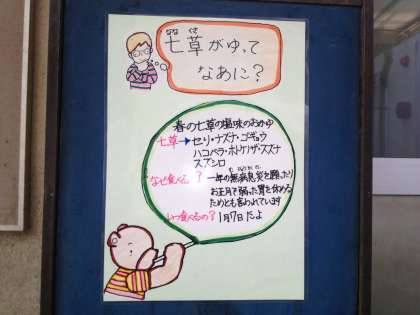 七草がゆって
なあに?
春の七草の塩味のおかゆ
七草→セリ・ナズナ・ゴギョウ
ハコベラ・ホトケノザ・スズナ
スズシロ
なぜ食べる? 一年の無病息災を願ったり
お正月で弱った胃を休める
ためとも言われています
いつ食べるの? 1月7日だよ